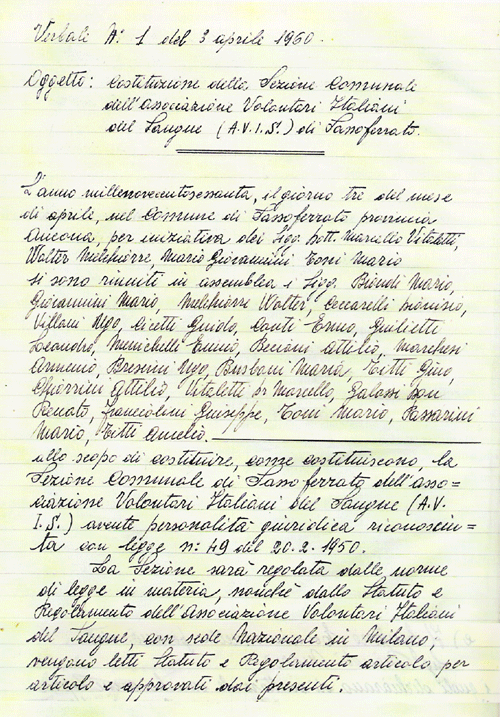 Verbali N: 1 del 3 aprile 1960.
Oggetto: Costituzione della Sezione Comunale
dell'Associazione Volontari Italiani
del Sangue (A.V.I.S.) di Sassoferrato.
L'anno millenovecentosessanta, il giorno tre del mese
di aprile, nel Comune di Sassoferrato provincia
Ancona, per iniziativa dei Sigg. Dott. Marcello Vitaletti,
Walter Melchiorre, Mario Giovannini Toni Mario
si sono riuniti in assemblea i Sigg. Biondi Mario,
Giovannini Mario Melchiorre Walter Ceccarelli Dionisio,
Villani Ugo, Cicetti Guido, Conti Enno, Giulietti
Leandro, Minichelli Enino, Beccioni Attilio, Marchesi
Armenio, Bresnini Ugo, Busboni Maria, Titti Gino,
Chiorrini Attilio, Vitaletti Dr Marcello, Galassi Don
Renato, Franciolini Giuseppe, Toni Mario, Passarini
Mario, Titti Amelio.
allo scopo di costituire, come costituiscono, la
Sezione Comunale di Sassoferrato dell'asso=
ciazione Volontari Italiani del Sangue (A.V.
I.S.) avente personalità giuridica riconosciu=
ta con legge n: 49 del 20.2.1950.
La Sezione sarà regolata dalle norme
di legge in materia, nonché dallo Statuto e
Regolamento dell'Associazione Volontari Italiani
del Sangue, con sede Nazionale in Milano;
vengono letti Statuto e Regolamento articolo per
articolo e approvati dai presenti.